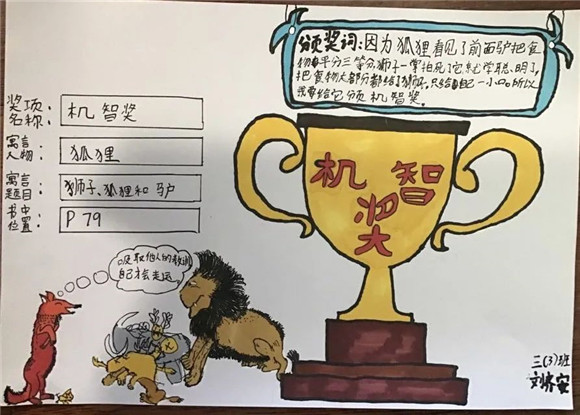 颁奖词:因为狐狸看见了前面驴把食
物平分三等分,狮子一掌拍死了它,就学聪明了,
把食物大部分都给了狮子,只给自己一小口。所以
我要给它颁机智奖。
奖项名称: 机智奖
寓言人物: 狐狸
寓言题目: 狮子、狐狸和驴
书中位置: P79
机智
奖
吸取他人的教训
自己才会走运。
三(3)班